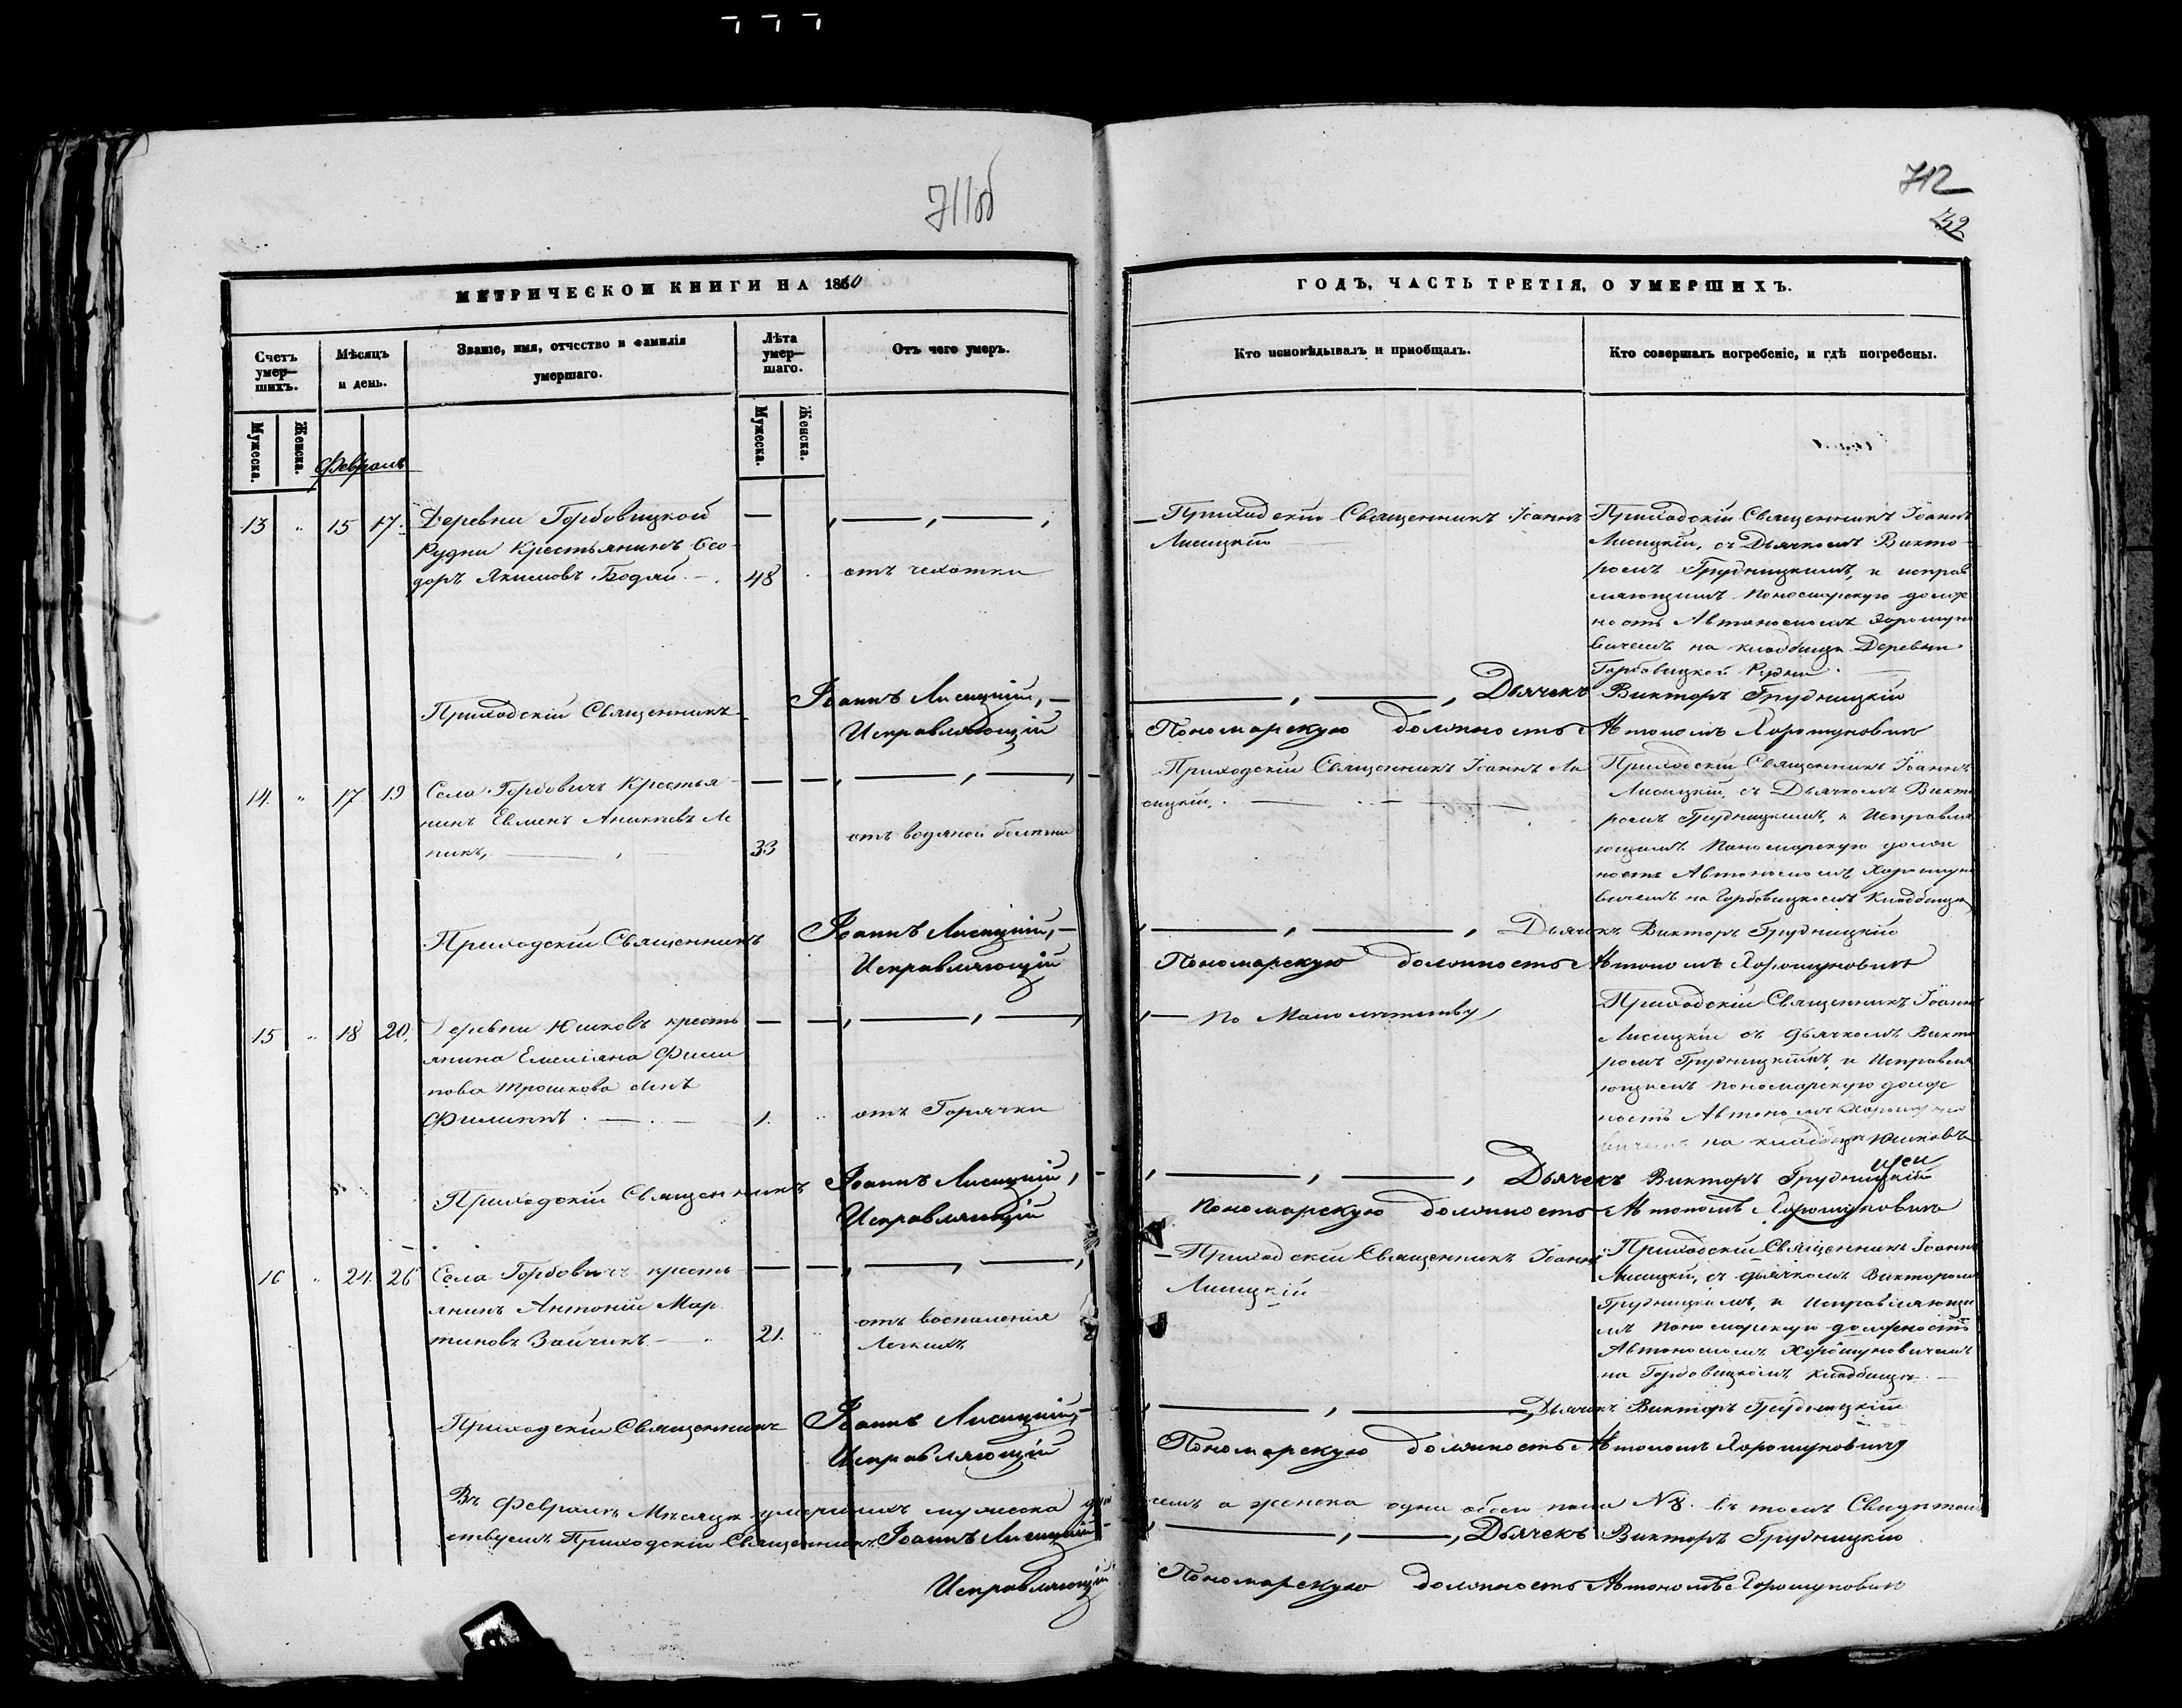 711об
712
МЕТРИЧЕСКОЙ КНИГИ НА 1860
ГОДЪ, ЧАСТЬ ТРЕТІЯ, О УМЕРШИХЪ.
Счетъ умер-
шихъ.
Мѣсяцъ
и день.
Званіе, имя, отчество и фамилія
умершаго.
Лѣта
умер-
шаго.
Отъ чего умеръ.
Кто исповѣдывалъ и приобщалъ.
Кто совершалъ погребеніе, и гдѣ погребены.
Мужеска.
Женска.
Мужеска.
Женска.
Февраль
13 " 15 17. Деревни Горбовицкой
Рудни Крестьянинъ Ѳео-
доръ Якимовъ Бодяй 48 отъ чехотки
Приходскій Священникъ Іоаннъ
Лисицкій
Приходскій Священникъ Іоаннъ
Лисицкій, съ Дьячкомъ Викто-
ромъ Грудницкимъ, и исправ
ляющимъ Пономарскую долж
ность Автономомъ Хорошуно
вичемъ на кладбищѣ Деревни
Горбовицкой Рудни.
Приходскій Священникъ Іоаннъ Лисицкій, Дьячекъ Викторъ Грудницкій
Исправляющій Пономарскую должность Автономъ Хорошуновичъ
14. " 17 19 Села Горбовичъ Крестья-
нинъ Евменъ
никъ, 33 отъ водяной болезни
Приходскій Священникъ Іоаннъ Ли
сицкій.
Приходскій Священникъ Іоаннъ
Лисицкій, съ Дьячкомъ Викто
ромъ Грудницкимъ, и Исправля
ющимъ Пономарскую долж
ность Автономомъ Хорошуно
вичемъ на Горбовицкомъ Кладбищѣ
Приходскій Священникъ Іоаннъ Лисицкій, Дьячекъ Викторъ Грудницкій
Исправляющій Пономарскую должность Автономъ Хорошуновичъ
15 " 18 20. Деревни Юшковъ кресть
янина Емеліана Фили
пова Трошкова сынъ
Филиппъ. 1. отъ Горячки
По Малолѣтству
Приходскій Священникъ Іоаннъ
Лисицкій съ дьячкомъ Викто
ромъ Грудницкимъ, и Исправля
ющимъ пономарскую долж
ность Автономъ Хорошуно
вичемъ на кладбищѣ Юшковъ
Приходскій Священникъ Іоаннъ Лисицкій, Дьячекъ Викторъ Грудницкій
Исправляющій Пономарскую должность Автономъ Хорошуновичъ
16 " 24. 26 Села Горбовичъ кресть
янинъ Антоній Мар
тиновъ Зайчикъ 21. отъ воспаленія
Легкихъ
Приходскій Священникъ Іоаннъ
Лисицкій
Приходскій Священникъ Іоаннъ
Лисицкій, съ дьячкомъ Викторомъ
Грудницкимъ, и Исправляющи
мъ Пономарскую должность
Автономомъ Хорошуновичемъ
на Горбовицкомъ Кладбищѣ
Приходскій Священникъ Іоаннъ Лисицкій, Дьячекъ Викторъ Грудницкій
Исправляющій Пономарскую должность Автономъ Хорошуновичъ
Въ Февралѣ Мѣсяцѣ умершихъ мужеска а женска одна обоего пола № 8. въ томъ Свидѣтель
ствуемъ Приходскій Священникъ Іоаннъ Лисицкій Дьячекъ Викторъ Грудницкій
Исправляющій Пономарскую должность Автономъ Хорошуновичъ